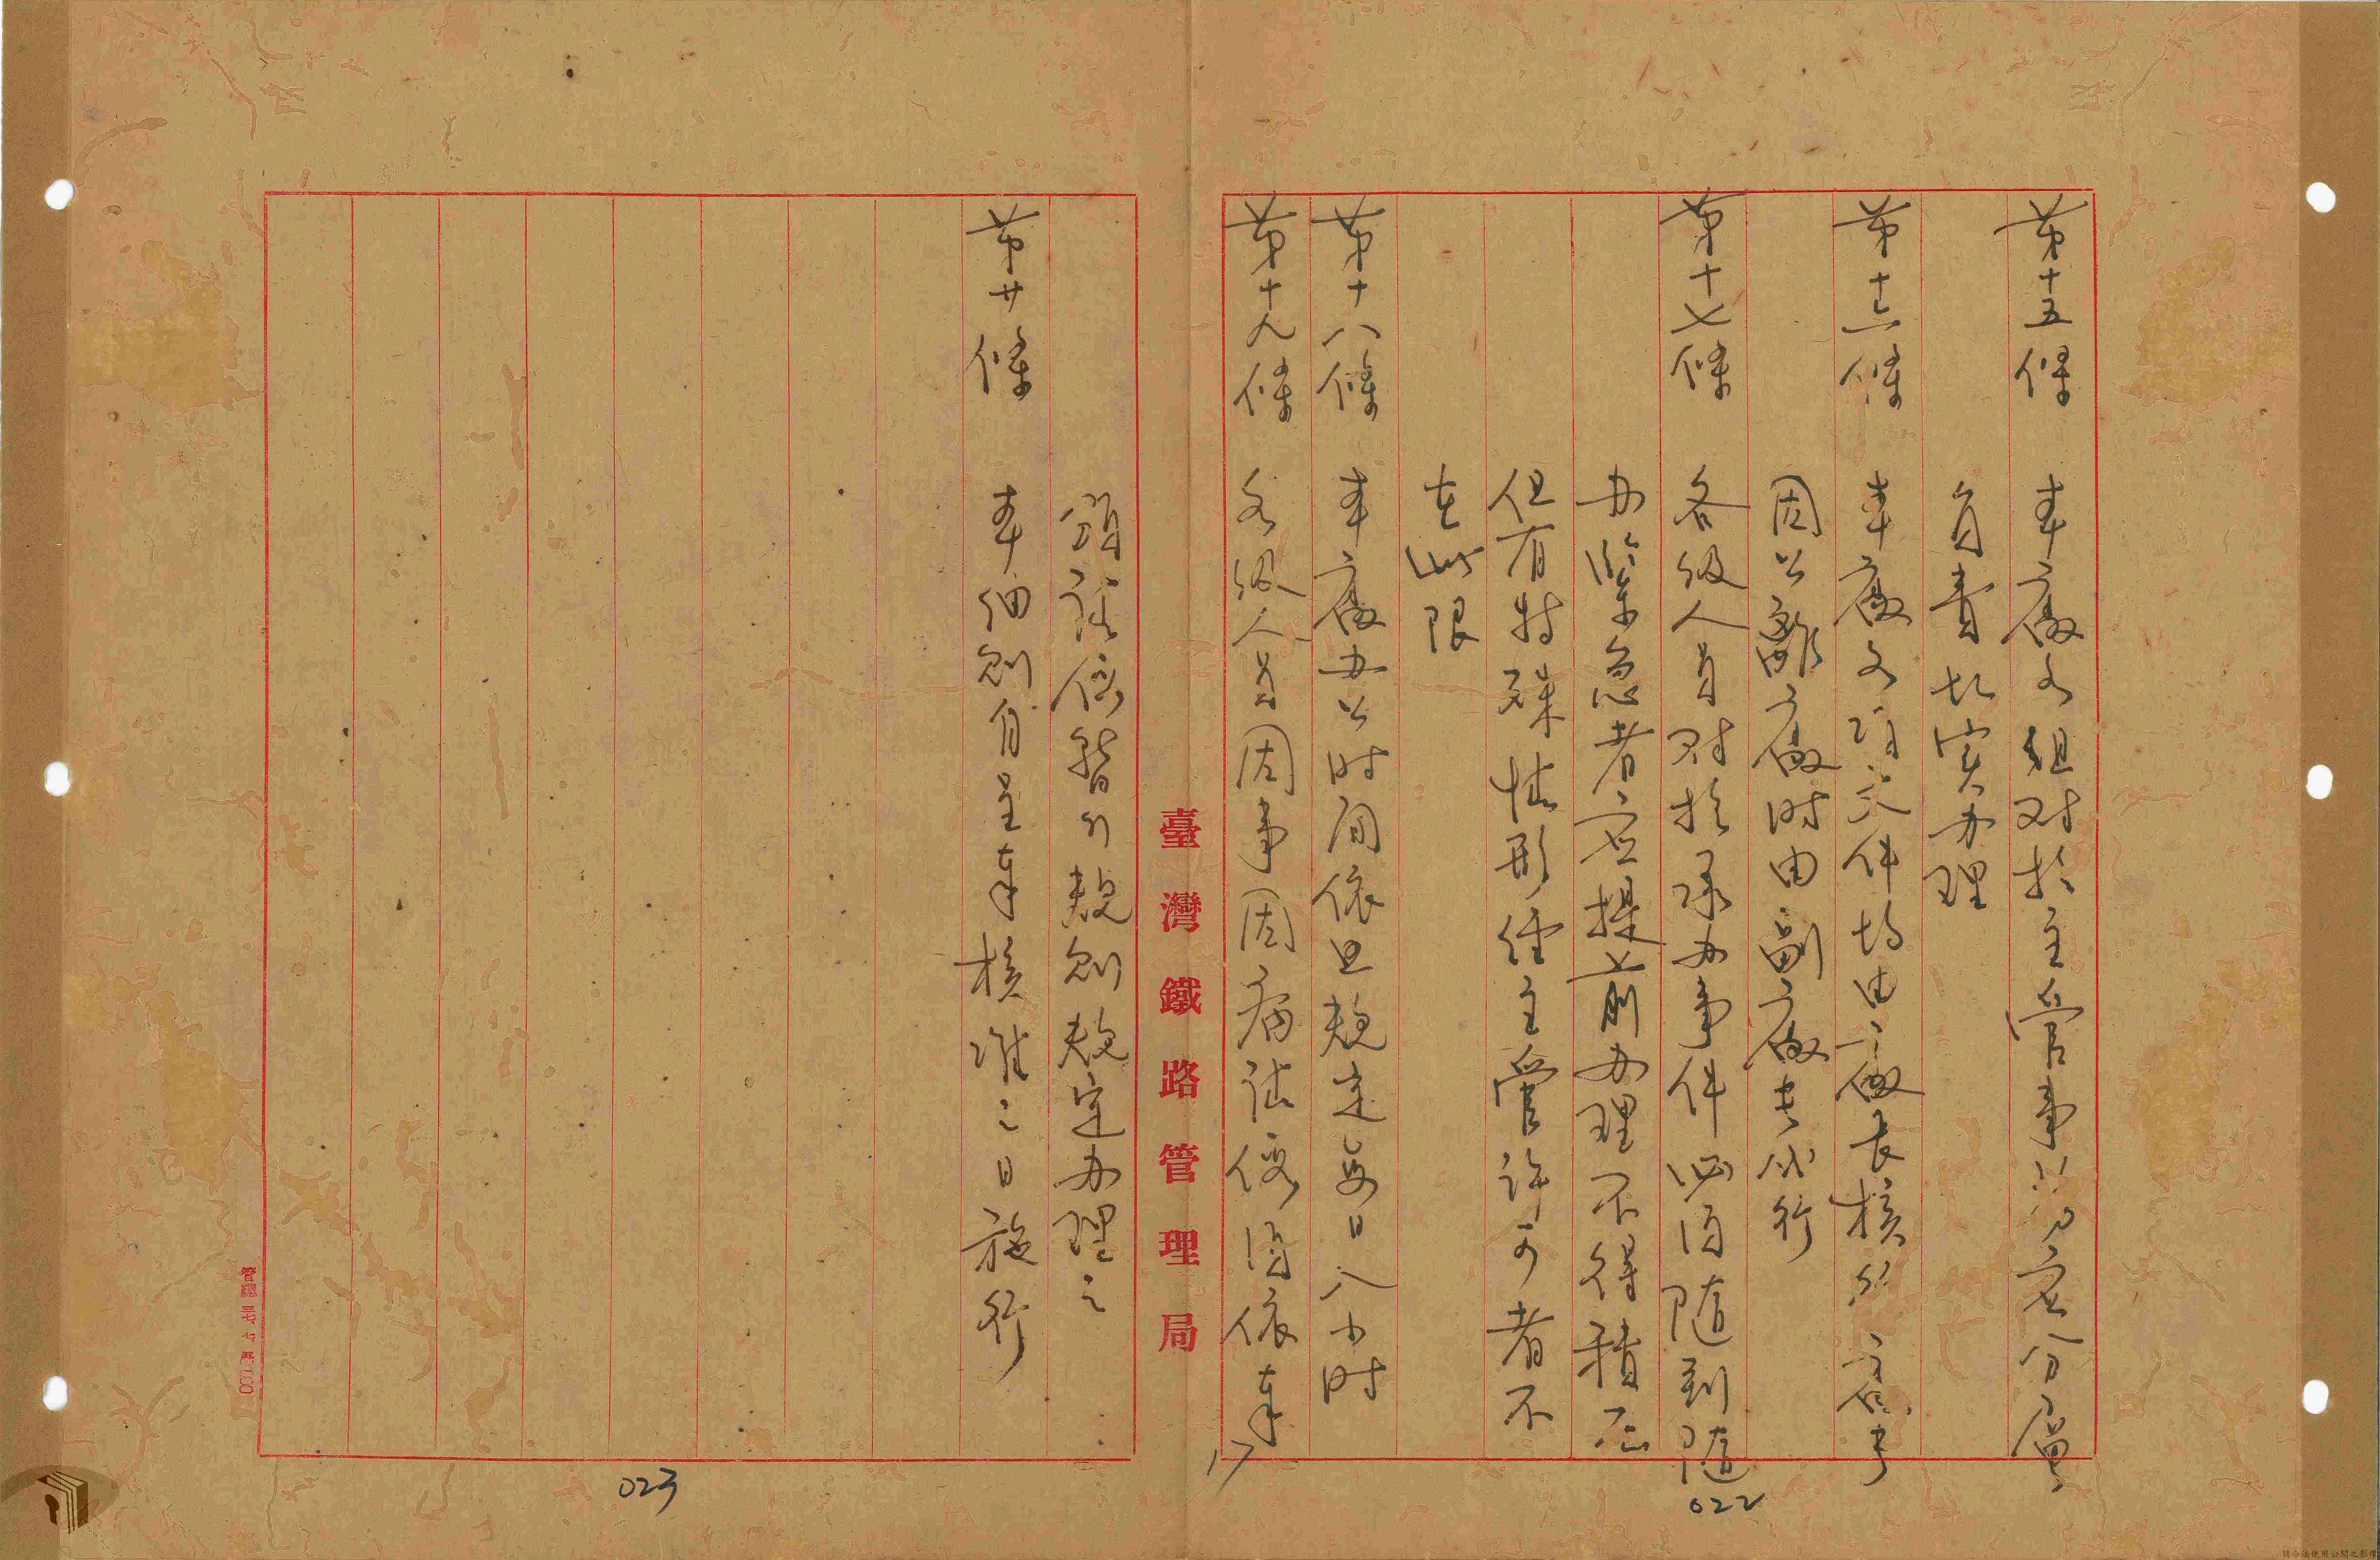 第十五條　本廠各組对於主管事務須充分層
負責切实办理
第十六條　本廠文項文件均由廠長核
因公離廠時由副廠長代行
第十七條　各级人員对於承办事件必須隨到隨
办紧急者应提前办理不得積压
但有特殊情形經主管許可者不
在此限
第十八條　本廠办公时间依照規定每日八小时
第十九條　各级人員因事因病請假須依奉
頒請假暫行規則規定办理之
第廿條　本细則自呈奉核准之日施行
臺灣鐵路管理局
022
023
17